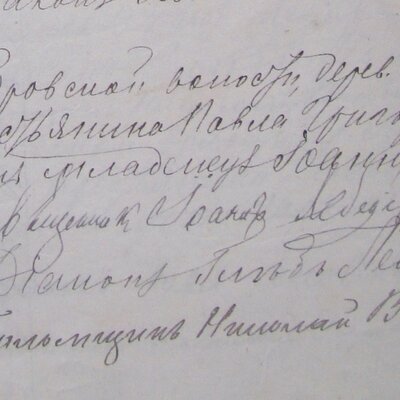 ровской волости, дерев.
стьянина Павла Григ
младенецъ Іоанн
вященник Іоаннъ Лебед
Діаконъ Глѣбъ
Псаломщикъ Николай В